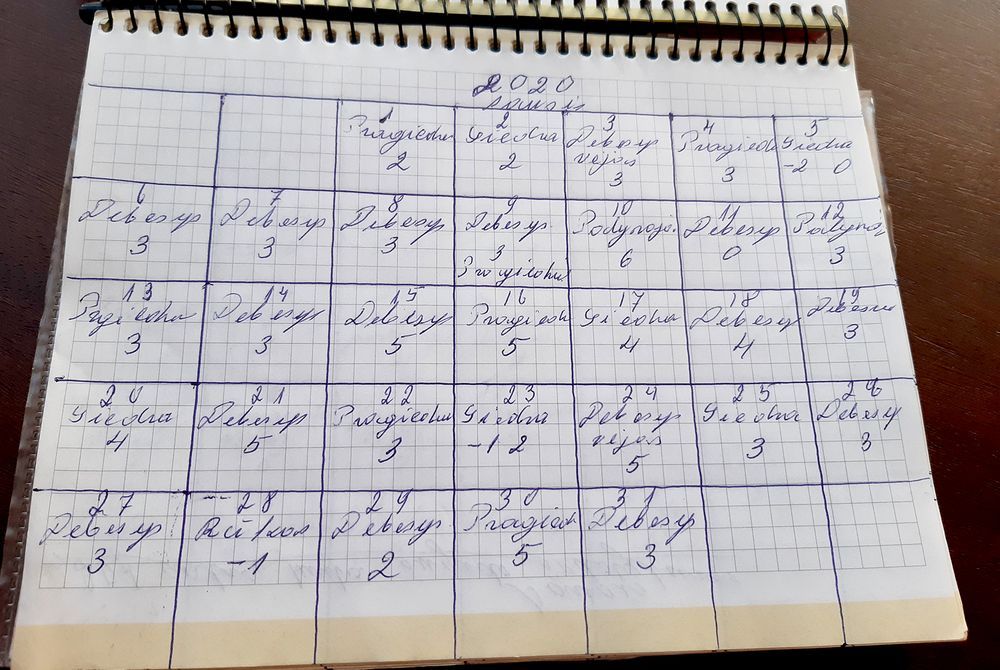 2020
Sausis
1 2 3 4 5
Pragiedru Giedra Debesys Pragiedr Giedra
2 2 vėjas 3 -2 0
3
6 7 8 9 10 11 12
Debesys Debesys Debesys Debesys Padynoja Debesys Padynoj
3 3 3 3 6 0 3
Pragiedru
13 14 15 16 17 18 19
Pragiedru Debesys Debesys Pragiedr Giedra Debesys Debesys
3 3 5 5 4 4 3
20 21 22 23 24 25 26
Giedra Debesys Pragiedru Giedra Debesys Giedra Debesys
4 5 3 -1 2 vėjas 3 3
5
27 28 29 30 31
Debesys Rūkas Debesys Pragied Debesys
3 -1 2 5 3